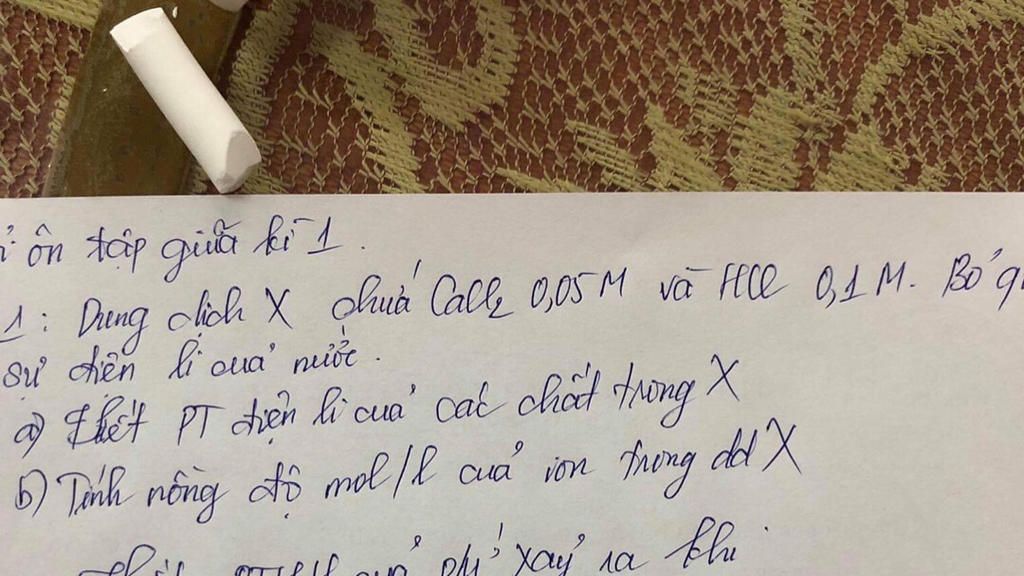 ôn tập giữa kì 1.
1: Dung dịch X chứa CaCl₂ 0,05M và HCl 0,1M. Bỏ q
sự điện li của nước.
a) Viết PT điện li của các chất trong X
b) Tính nồng độ mol/l của ion trong dd X
của xảy ra khi